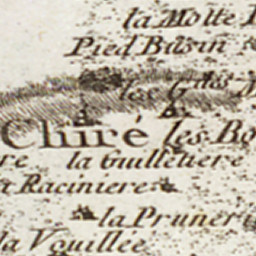 la Motte
Pied Basin
les Gds
Chiré les Bo
re la Guilletiere
a Raciniere
la Pruneri
la Vouillee